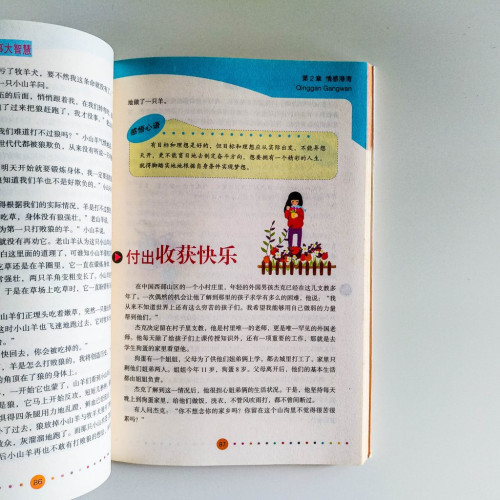 事大智慧
亏了牧羊犬，要不然我这条命就
只小山羊问。
的后面，悄悄跟着我，在我们
了过来把狼赶跑了，我才
我们难道打不过狼吗？”小山羊
世代代都被狼欺负，从来没有
明天开始就要锻炼身体，我一定
狼知道我们羊也不是好欺负的。
得根据我们的实际情况，羊是打不过
吃草，身体没有狼强壮。”老山羊
为第一只打败狼的羊。”小山羊
就没有再劝它。老山羊认为这只小山
白这里面的道理了，可谁知小山羊
吃草还是在羊圈里，它一直在
得强壮，两只羊角变粗变长了。小山
于是在草场上吃草时，它一
山羊们正埋头吃着嫩草，突然
这时小山羊也飞速地跑过去，
快回去，你会被吃掉的。”
，羊是怎么打败狼的。我将创造
的角顶在了狼的身体上。
，一开始它也蒙了，山羊们
是狼，它马上开始反攻，
惧得四条腿用力地乱蹬，
过去，狼放掉小山羊与牧羊犬
牧众，灰溜溜地跑了。面那只小山羊
后小羊再也不敢有打败狼的
86
第2章 情感港湾
Qinggan Gangwan
地做了一只羊。
感悟心语
有目标和理想是好的，但目标和理想应从实际出发，不能异想
天开，更不能盲目地去制定奋斗方向。想要拥有一个精彩的人生，
就得脚踏实地地根据自身条件实现梦想。
付出收获快乐
在中国西部山区的一个小村庄里，年轻的外国男孩杰克已经在这儿支教多
年了。一次偶然的机会让他了解到那里的孩子求学有多么的困难。他说：“我
从来不知道世界上还有这么穷苦的孩子们。我希望我能够用自己微薄的力量
帮到他们。”
杰克决定留在村子里支教，他是村里唯一的老师，更是唯一罕见的外国老
师，他每天除了给孩子们上课传授知识外，还有一项重要的工作，那就是去
学生狗蛋的家里看望他。
狗蛋有一个姐姐，父母为了供他们姐弟俩上学，都去城里打工了，家里只
剩他们姐弟两人。姐姐今年11岁，狗蛋8岁。父母离开后，他们的基本生活都
由姐姐负责。
杰克了解到这一情况后，他很担心姐弟俩的生活状况。于是，他坚持每天
晚上到狗蛋家里，给他们做饭、洗衣，不管风吹雨打，都不曾间断过。
有人问杰克：“你不想念你的家乡吗？你留在这个山沟里不觉得很苦很累
吗？”
87